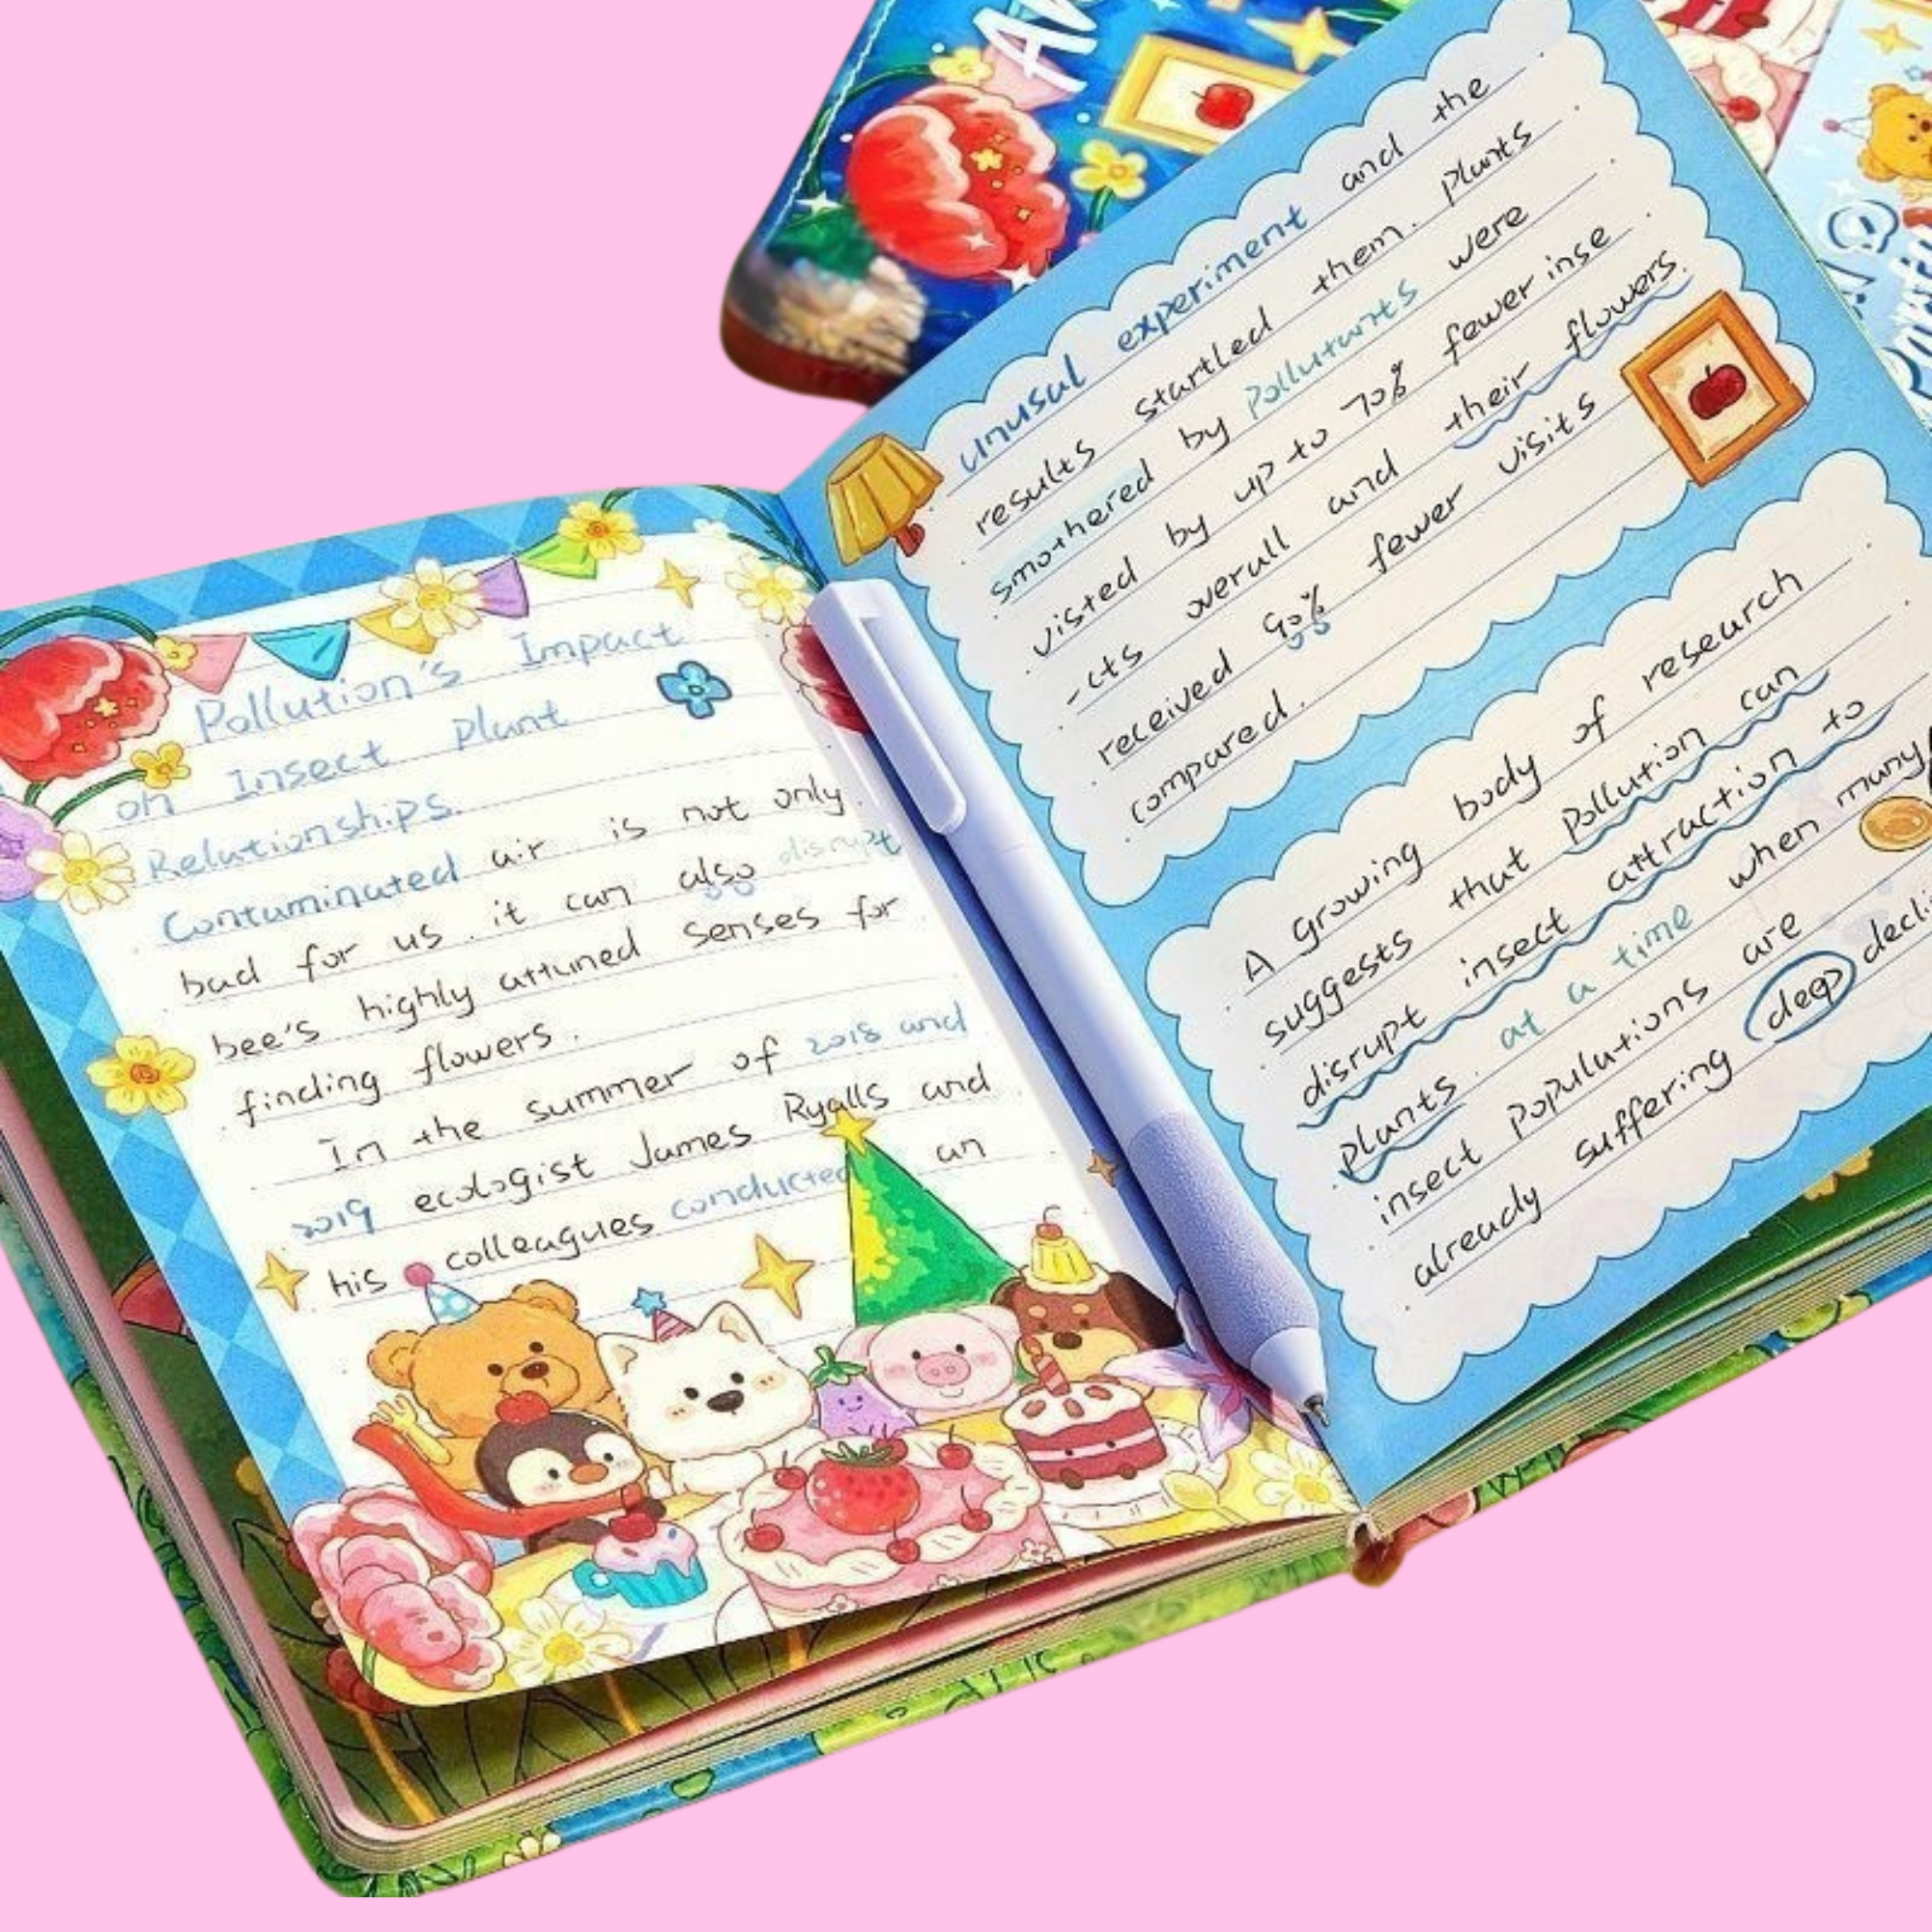 Pollution's Impact
on Insect Plant
Relationships.
Contaminated air is not only
bad for us. it can also disrupt
bee's highly attuned senses for
finding flowers.
In the summer of 2018 and
2019 ecologist James Ryalls and
his colleagues conducted an
unusal experiment and the
results startled them. Plants
smothered by Pollutants were
visted by up to 70% fewer inse
-cts overall and their flowers.
received 90% fewer visits
compared.
A growing body of research
suggests that Pollution can
disrupt insect attraction to
plants. at a time when many
insect populations are
already suffering deep